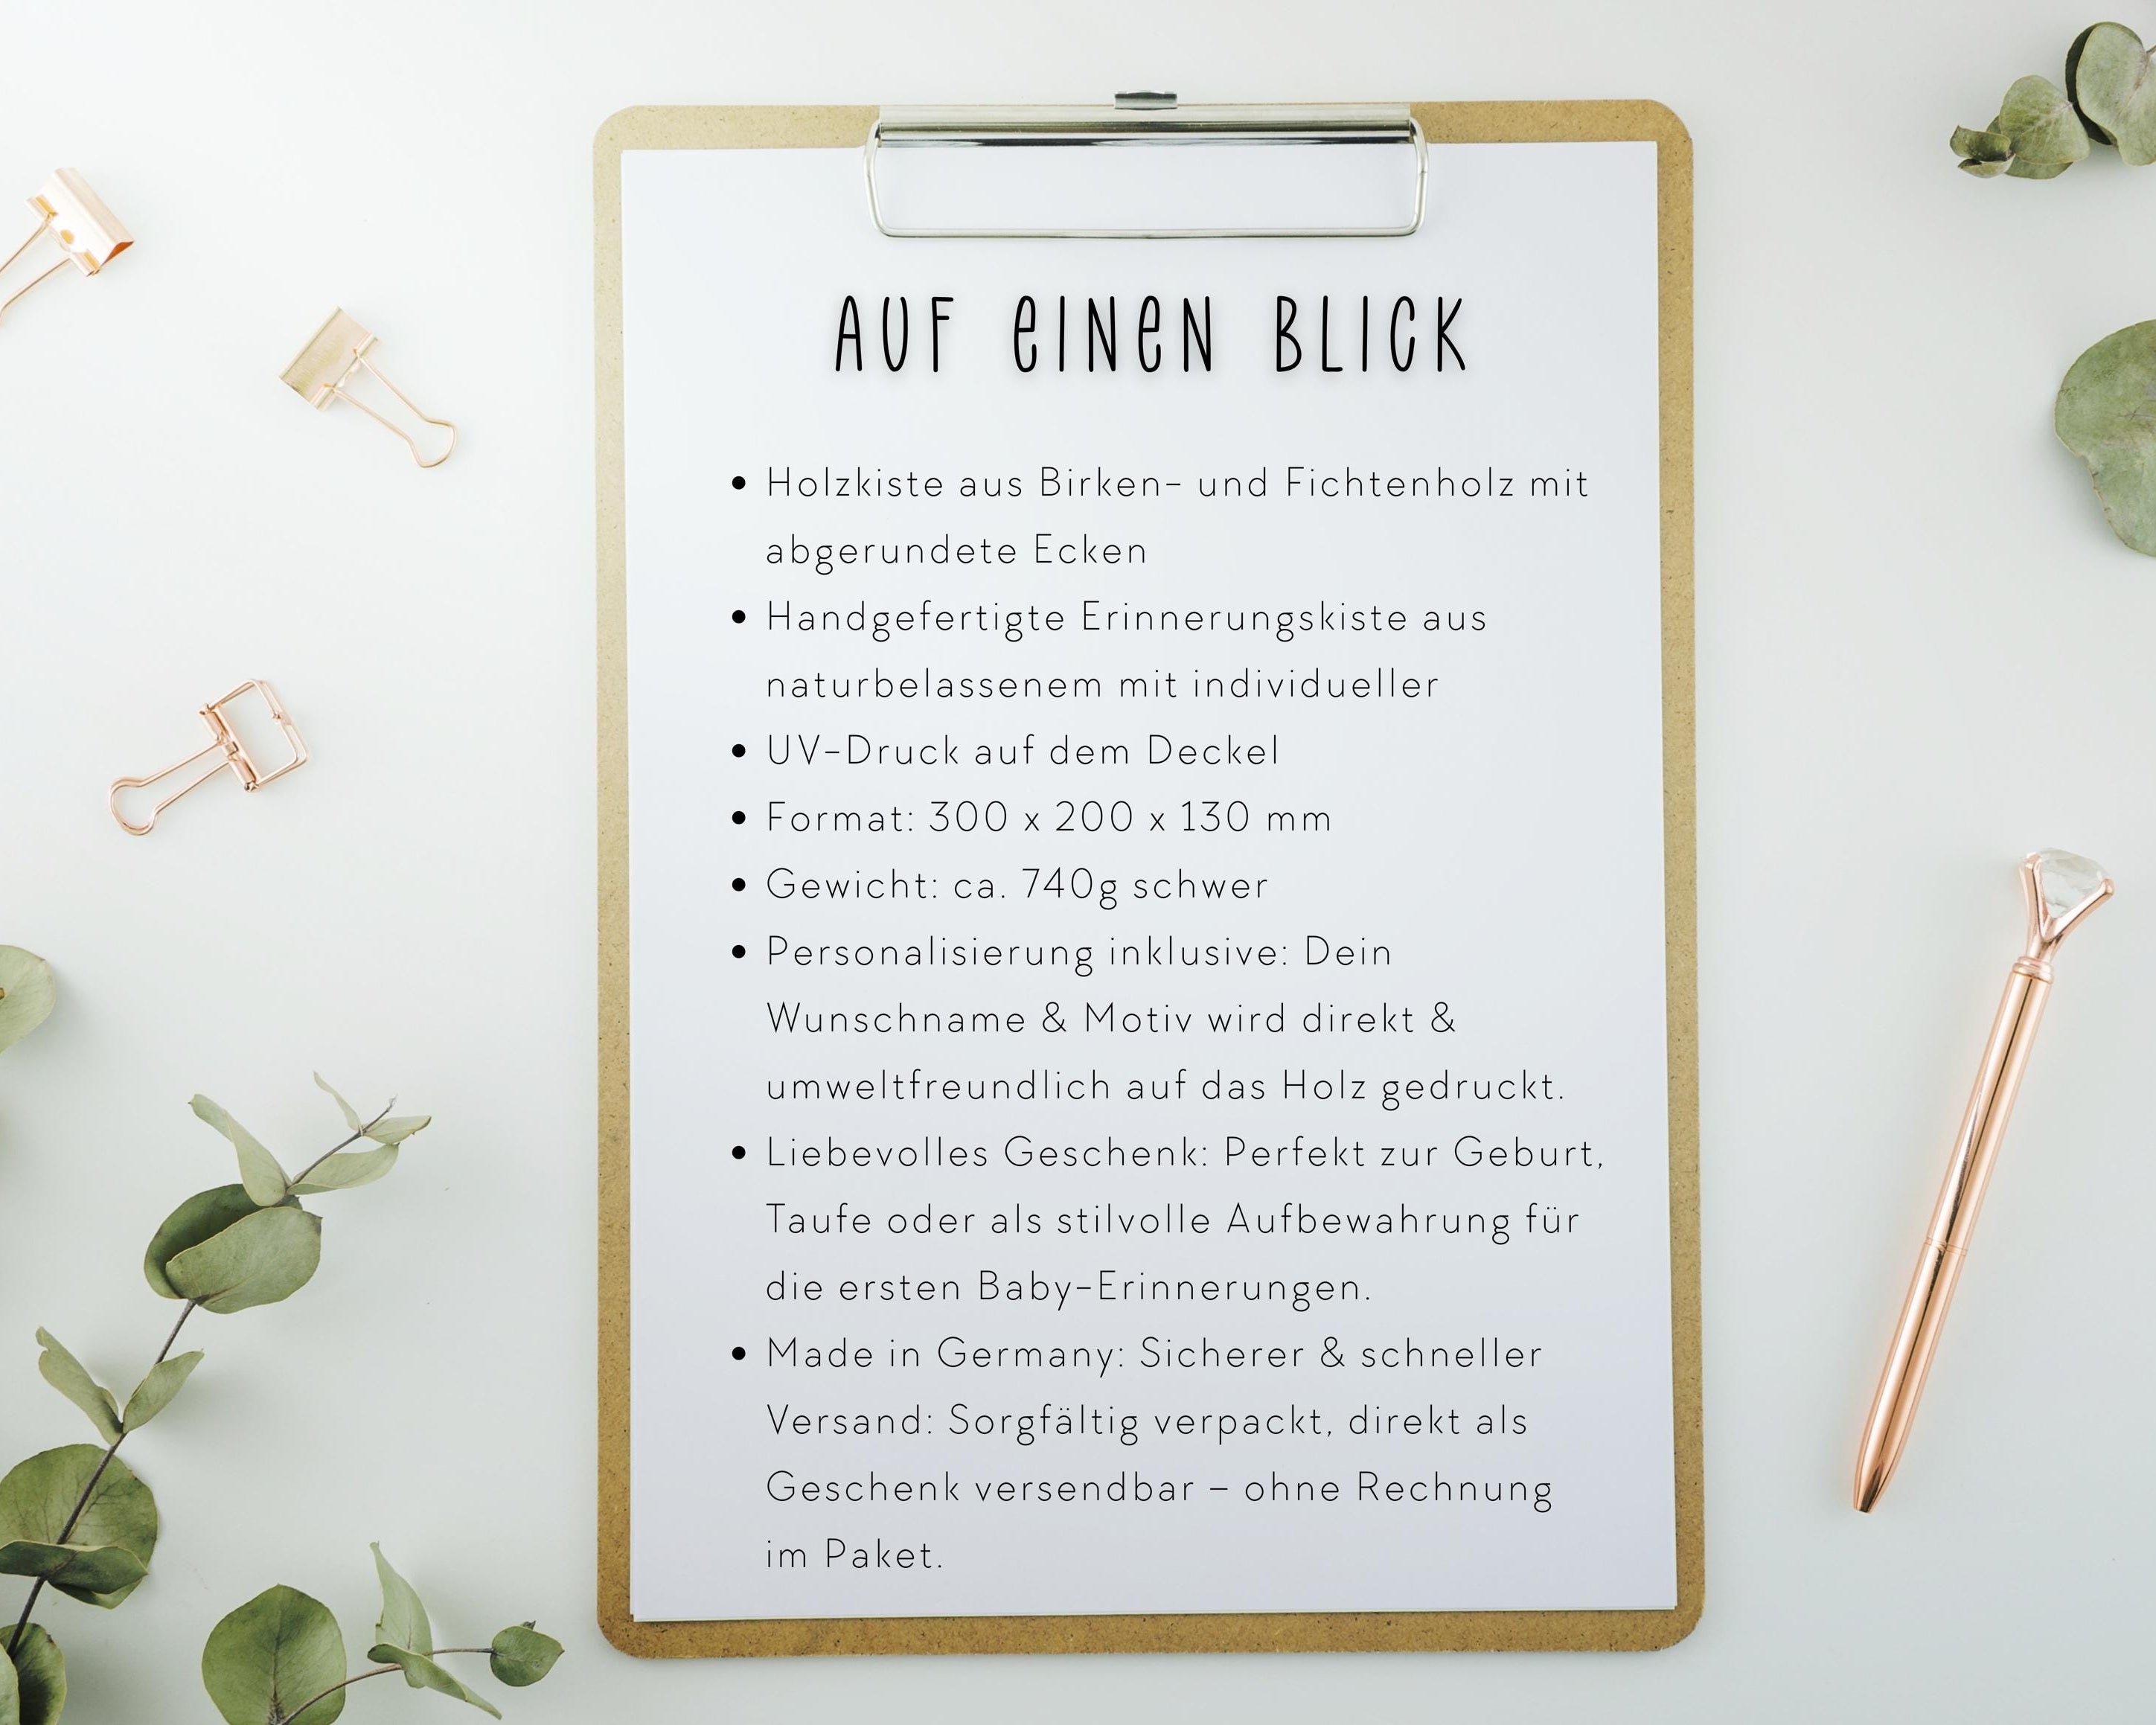 AUF EINEN BLICK
• Holzkiste aus Birken- und Fichtenholz mit
abgerundete Ecken
• Handgefertigte Erinnerungskiste aus
naturbelassenem mit individueller
• UV-Druck auf dem Deckel
• Format: 300 x 200 x 130 mm
• Gewicht: ca. 740g schwer
• Personalisierung inklusive: Dein
Wunschname & Motiv wird direkt &
umweltfreundlich auf das Holz gedruckt.
• Liebevolles Geschenk: Perfekt zur Geburt,
Taufe oder als stilvolle Aufbewahrung für
die ersten Baby-Erinnerungen.
• Made in Germany: Sicherer & schneller
Versand: Sorgfältig verpackt, direkt als
Geschenk versendbar – ohne Rechnung
im Paket.